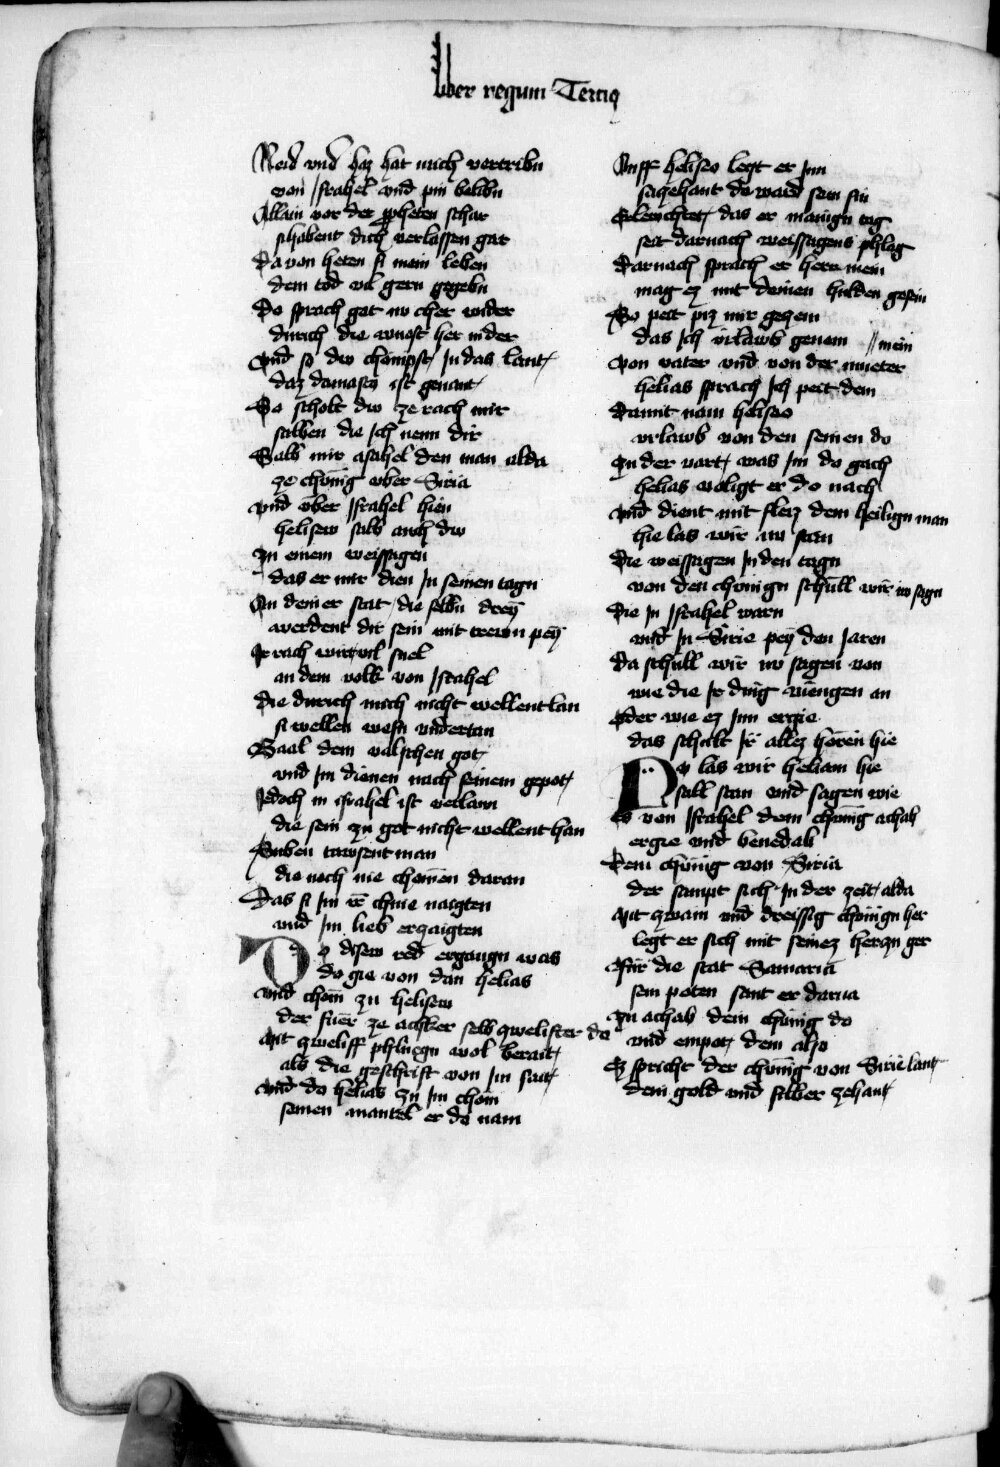 Liber regum Terciꝯ
Neid vnd haz hat mich vertribn
von Israhel vnd pin belibn
Allain vor der ppheten schar
si habent dich verlassen gar
Da von heten si mein leben
dem tod vil gern gegebn
Do sprach got nv cher wider
durich die wuest her nider
Vnd so dw chompst In das lant
daz damasch ist genant
So scholt dw ze rach mir
salben die Ich nenn dir
Salb mir asahel den man alda
ze chönig vber Siria
vnd vber Israhel hien
helisew salb auch dw
Zu einem weissagen
das er mir dien In seinen tagn
An deiner stat die selbn dreÿ
werdent dir sein mit trewn peÿ
Ir rach wirt vil snel
an dem volk von Israhel
die durich mich nicht wellent lan
si wellen wesn vndertan
Baal dem valschen got
vnd Im dienen nach seinem gepot
Jedoch in israhel ist verlann
die sein zu got nicht wellent han
Siben tawsent man
die noch nie chomen daran
Das si im ir chnie naigten
vnd Im lieb erzaigten
Do disew red ergangn was
do gie von dan helias
vnd chom zu helisew
der fuer ze achker selb zwelifter do
Mit zweliff phlugn wol berait
als die geschrift von Im sait
Vnd do helias zu Im chom
seinen mantel er do nam
Auff heliseo legt er Inn
sagehant do ward sein sin
Erlewchtet das er manign tag
seit darnach weissagens phlag
Darnach sprach er herr mein
mag ez mit deinen hulden gesein
So peit piz mir gezem
das Ich vrlawb genem // mein
von vater vnd von der mueter
helias sprach Ich peit dein
Damit nam heliseo
vrlawb von den seinen do
Zu der vart was Im do gach
helias voligt er do nach
vnd dient mit fleiz dem heilign man
hie las wir nv stan
Die weissagen In den tagn
von den chönign schull wir nv sagn
Die In Israhel warn
vnd In Sirie peÿ den Jaren
Da schull wir nv sagen von
wie die Ir ding viengen an
Oder wie ez Inn ergie
das schult Ir allez hören hie
Nv las wir heliam hie
still stan vnd sagen wie
Es von Israhel dem chönig achab
ergie vnd benedab
Dem chönig von Siria
der sampt sich In der zeit alda
Mit zwain vnd dreissig chönign her
legt er sich mit seinez herczn ger
Für die stat Samaria
sein poten sant er darna
Zu achab dem chönig do
vnd empot dem also
Ez spricht der chönig von Sirie lant
dein gold vnd silber zehant